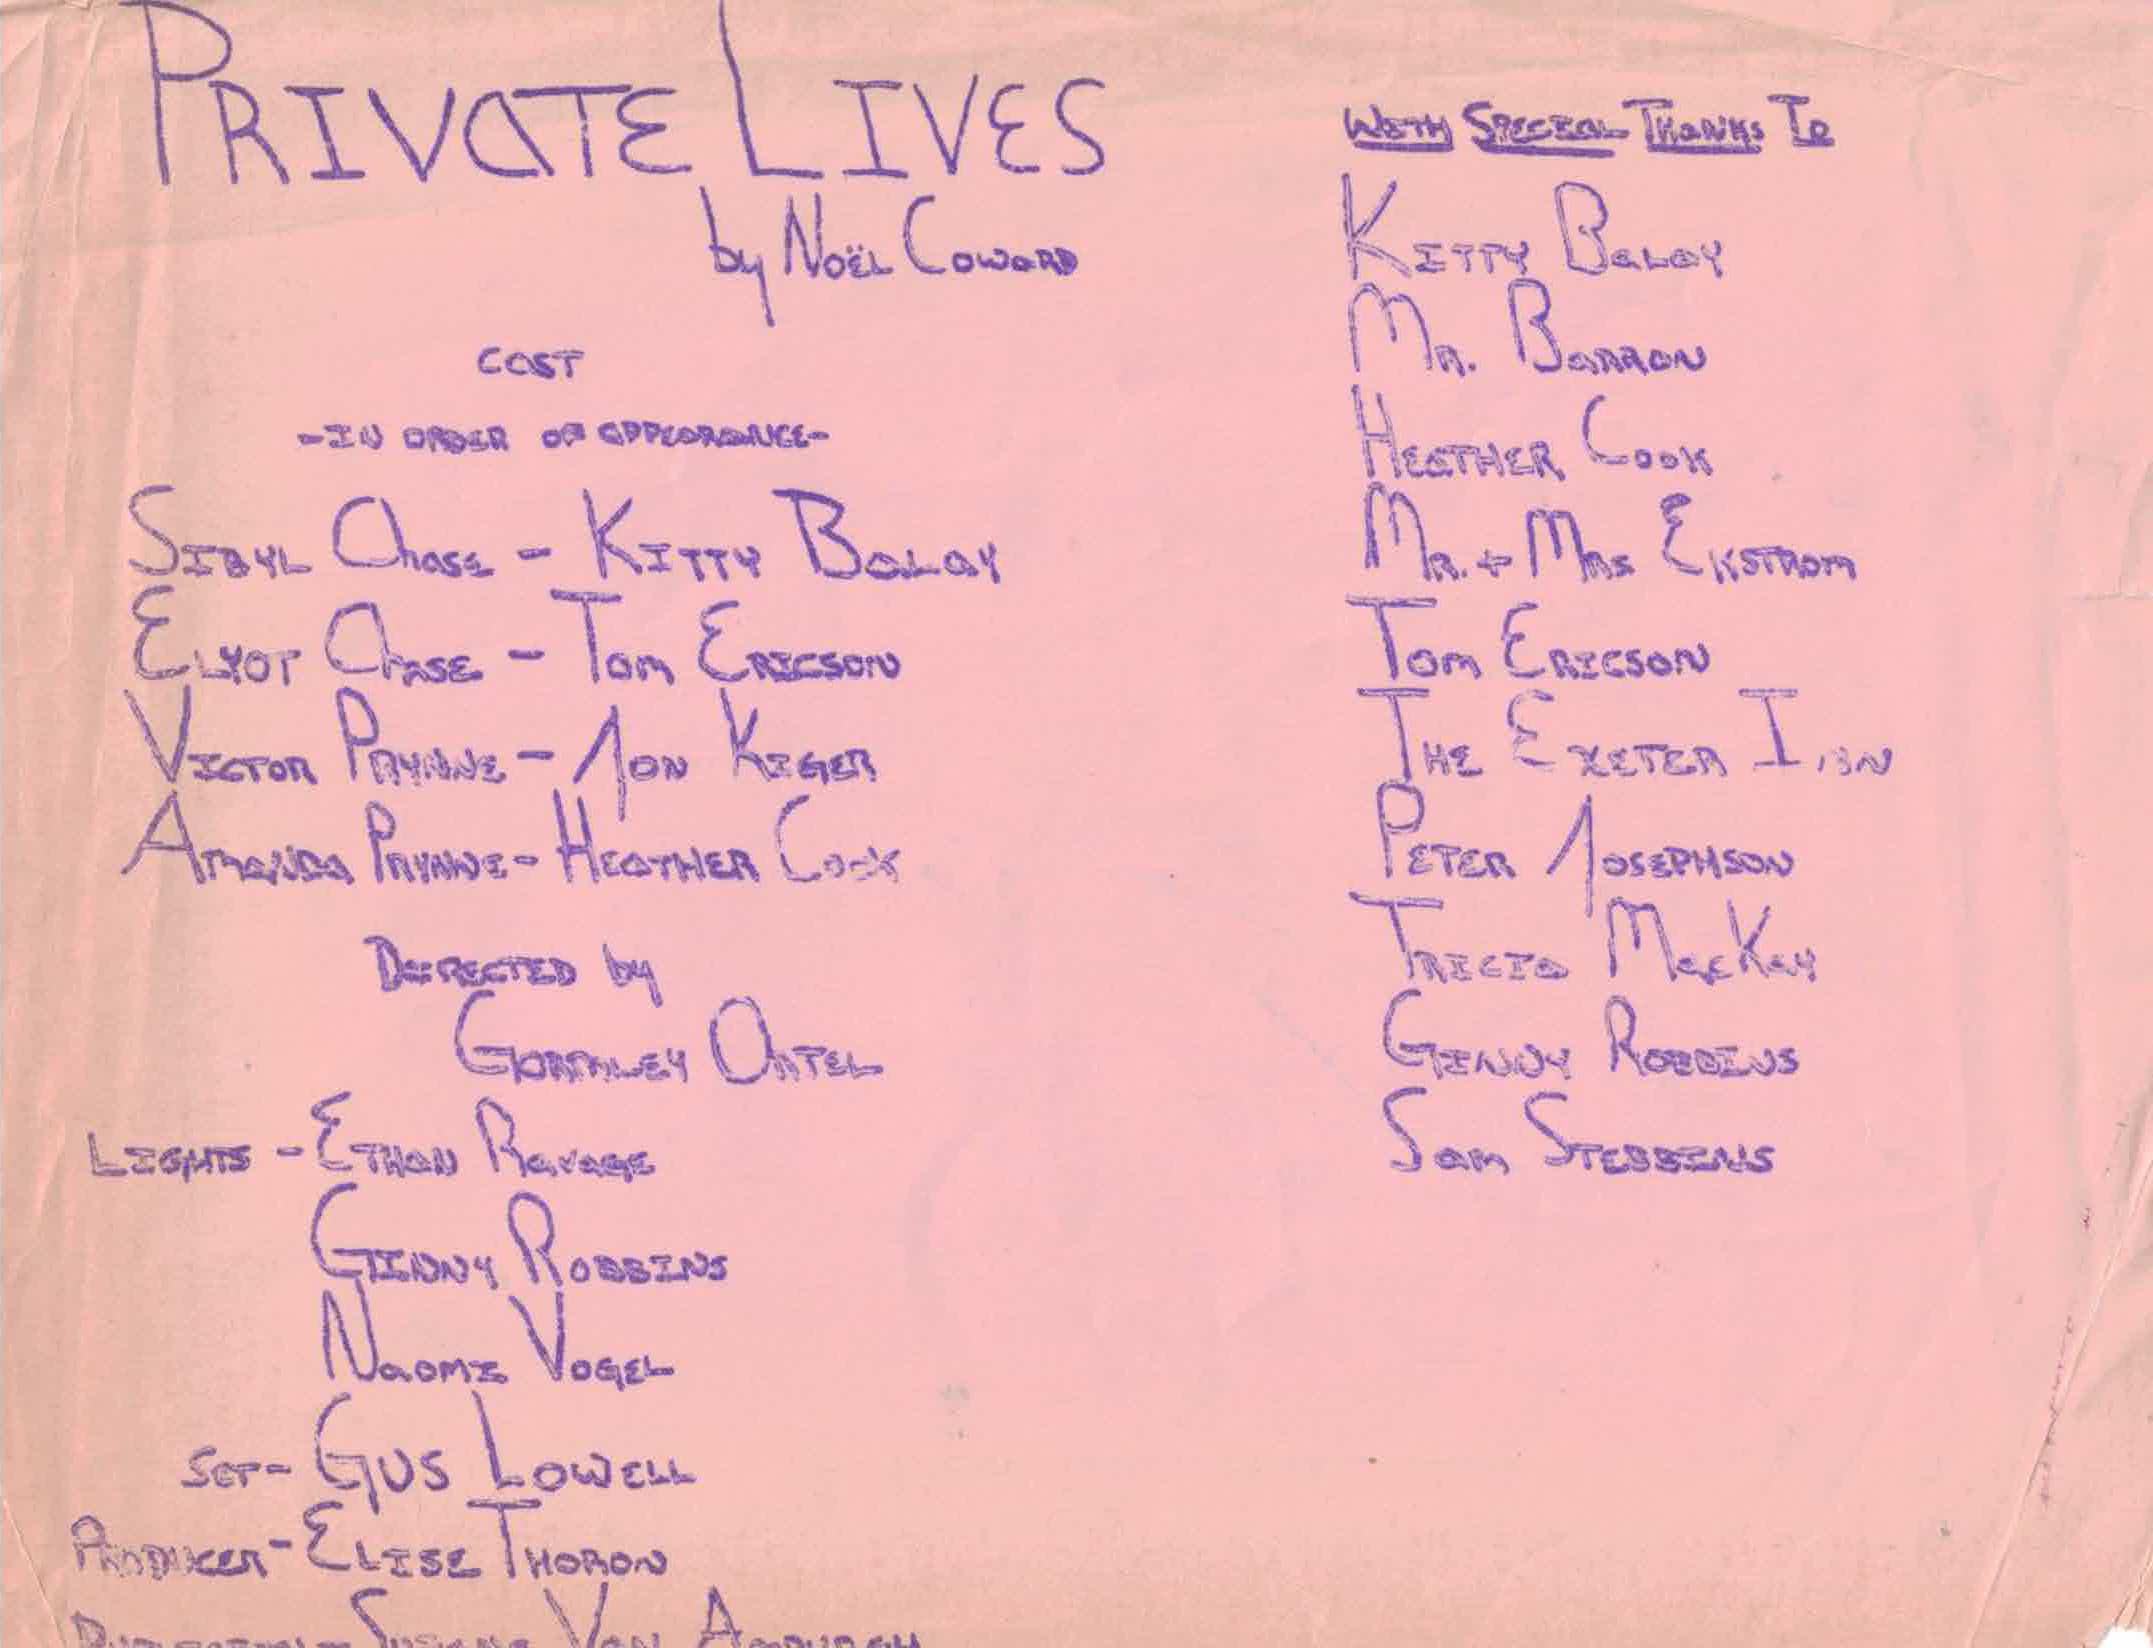 PRIVATE LIVES
by NOËL COWARD
CAST
-IN ORDER OF APPEARANCE-
SIBYL CHASE - KITTY BALAY
ELYOT CHASE - TOM ERICSON
VICTOR PRYNNE - JON KIGER
AMANDA PRYNNE - HEATHER COOK
DIRECTED by
GORMLEY ORTEL
LIGHTS - ETHAN RAVAGE
GINNY ROBBINS
NAOMI VOGEL
SET - GUS LOWELL
PRODUCER - ELISE THORON
VAN
WITH SPECIAL THANKS TO
KITTY BALAY
MR. BARRON
HEATHER COOK
MR. + MRS EKSTROM
TOM ERICSON
THE EXETER INN
PETER JOSEPHSON
TRICIA MACKAY
GINNY ROBBINS
SAM STEBBINS